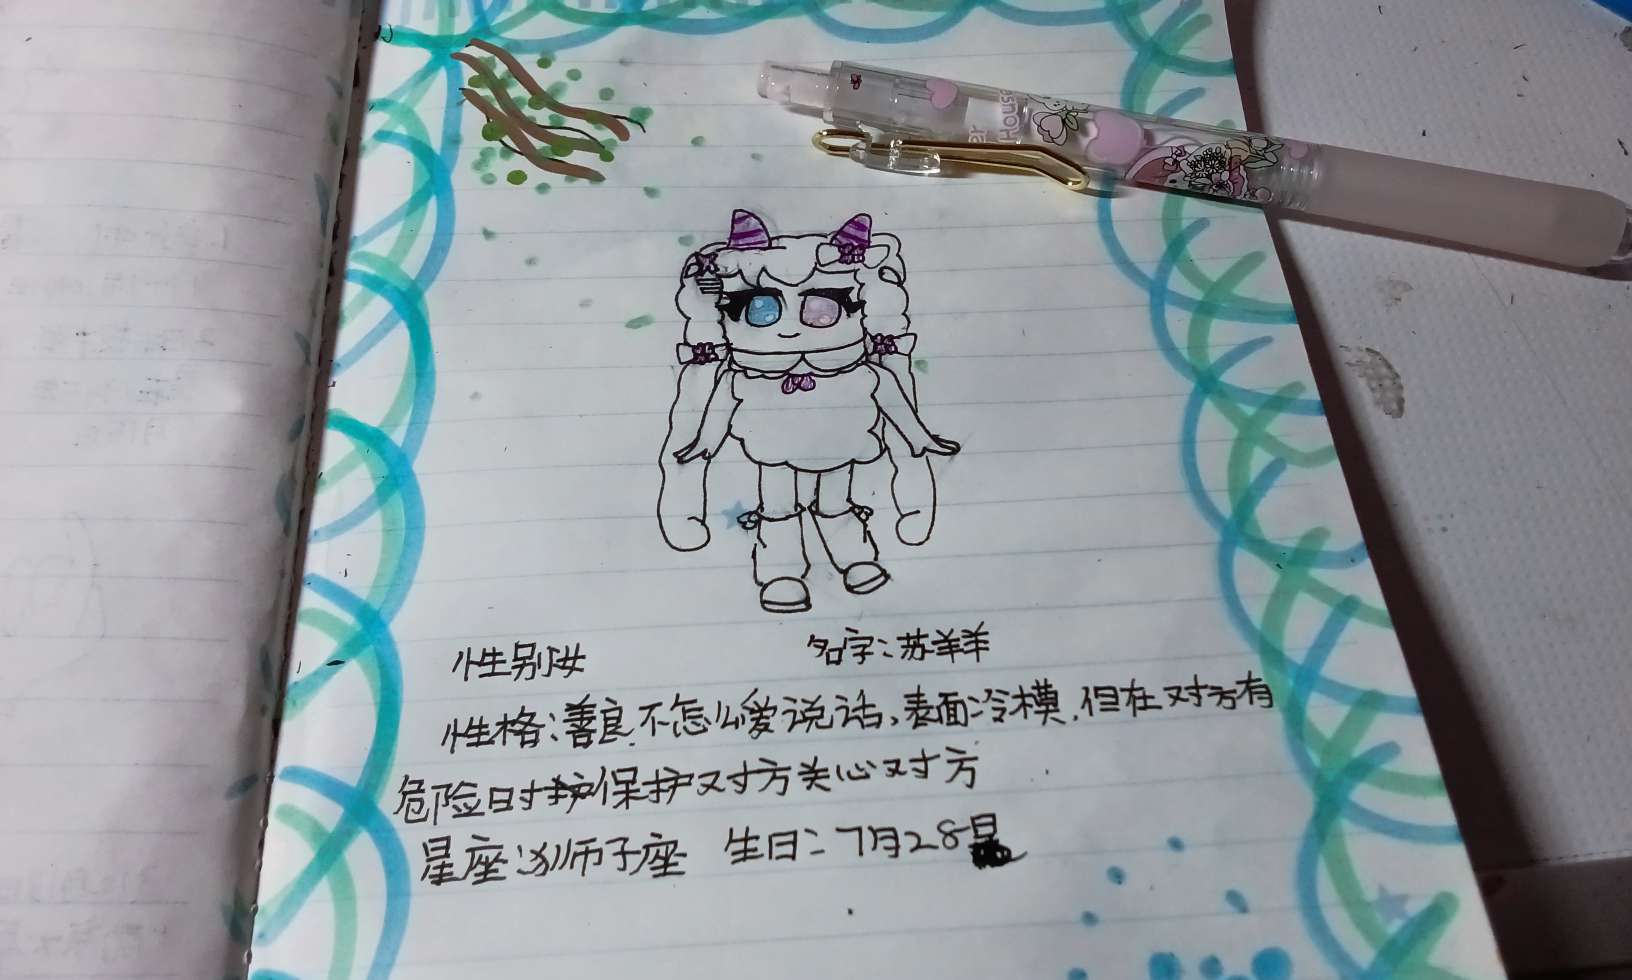 性别女 名字:苏羊羊
性格:善良.不怎么爱说话、表面冷模.但在对方有
危险时护保护对方关心对方
星座:狮子座 生日:7月28日
House